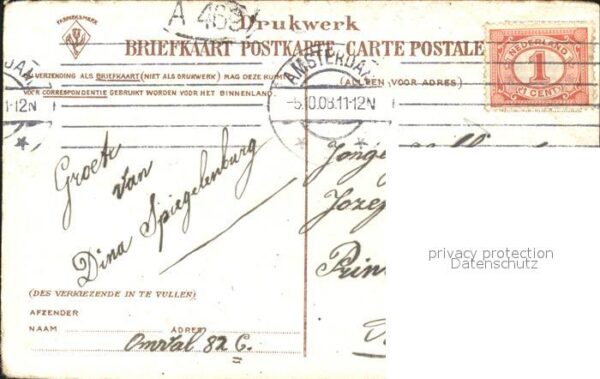 FABRIEKSMERK
A 469
Drukwerk
BRIEFKAART POSTKARTE, CARTE POSTALE
VERZENDING ALS BRIEFKAART (NIET ALS DRUKWERK) MAG DEZE RUIMTE
(ALLEEN VOOR ADRES)
VOOR CORRESPONDENTIE GEBRUIKT WORDEN VOOR HET BINNENLAND.
NEDERLAND
1
CENT
1-12N
AMSTERDAM
-5.10.08.11-12N
Groete
van
Dina Spiegelenburg
Joze
Prin
privacy protection
Datenschutz
(DES VERKIEZENDE IN TE VULLEN)
AFZENDER
NAAM ADRES
Omval 82 C.